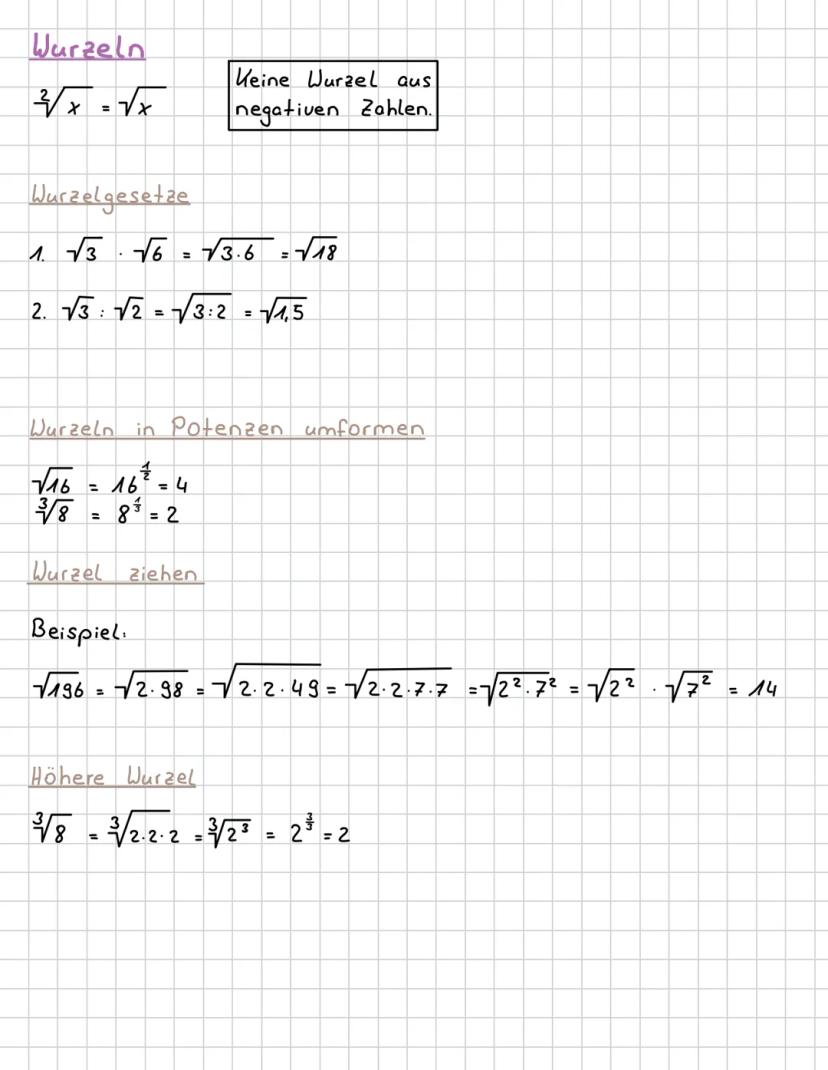 Wurzeln
²√x = √x
Keine Wurzel aus
negativen Zahlen.
Wurzelgesetze
1. √3 · √6 = √(3·6) = √18
2. √3 : √2 = √(3:2) = √1,5
Wurzeln in Potenzen umformen
√16 = 16^(1/2) = 4
³√8 = 8^(1/3) = 2
Wurzel ziehen
Beispiel:
√196 = √(2·98) = √(2·2·49) = √(2·2·7·7) = √(2²·7²) = √2² · √7² = 14
Höhere Wurzel
³√8 = ³√(2·2·2) = ³√2³ = 2^(3/3) = 2